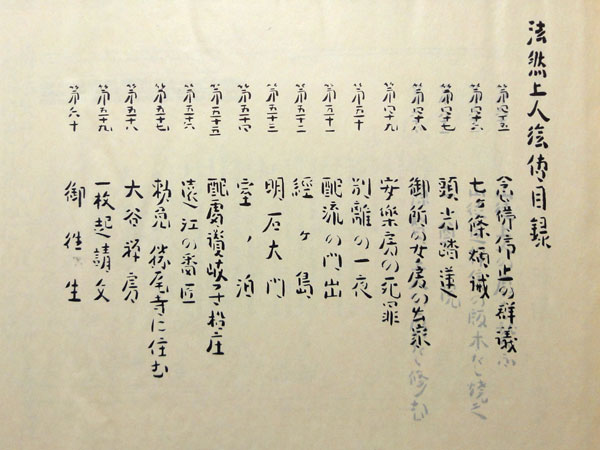 法然上人絵傳目録
第四十五 念佛停止の群議
第四十六 七ヶ條炳誡
第四十七 頭光踏蓮
第四十八 御所の女房の出家
第四十九 安樂房の死罪
第五十 別離の一夜
第五十一 配流の門出
第五十二 經ヶ島
第五十三 明石大門
第五十四 室ノ泊
第五十五 配處讃岐子松庄
第五十六 遠江の番匠
第五十七 勅免 勝尾寺に住む
第五十八 大谷禅房
第五十九 一枚起請文
第六十 御往生